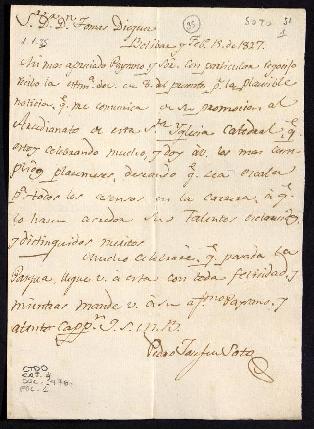 Sr. Dr. Dn. Tomas Dieguez
95
SOTO
51
1
1.1.35
Bolibar y Feb.o 13. de 1827.
Mi mas apreciado Paysano y Sor. con particular regosijo
recibo la estim.e de V. de 8. del presente pr. la plausible
noticia q. me comunica de su promocion al
Arcedianato de esta Sta. Yglesia Catedral q.
estoy celebrando mucho, y doy a V. los mas cum-
plidos plasemes, deseando q. sea escala
pa. todos los acensos en la carrera, á q.
lo hacen acredor sus Talentos esclarecidos
y distinguidos meritos.
Mucho celebraré q. pasada la
Pasqua, llegue V. á esta con toda felicidad, y
mientras mande V. á su af.mo Paysano, y
atento Capp.n Q. S. M. B.
Pedro Soto
CTDD
CAR. 4
DOC. 1478
FOL. 1